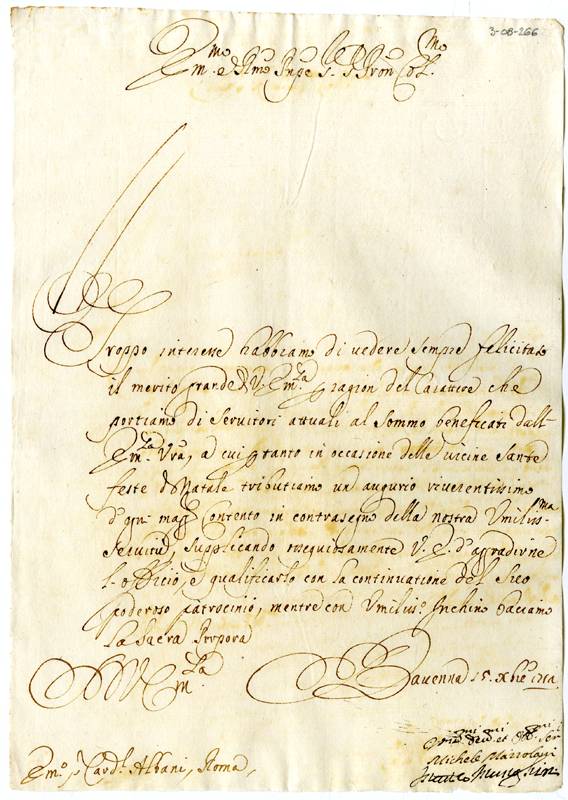 3-08-266
Em.mo e Rmo Pnpe S. P.ron Col.mo
Troppo interesse habbiamo di vedere sempre felicitato
il merito grande di V. Em.za p ragion del Carattere che
portiamo di Servitori attuali al Sommo beneficati dall-
Em.za Vra, a cui p tanto in occasione delle vicine Sante
feste di Natale tributiamo un augurio riverentissimo
d'ogni magg. Contento in contrasegno della nostra Umiliss.ma
Servitù, supplicando ossequiosamente V. E. d'aggradirne
l'officio, e qualificarlo con la continuatione del Suo
poderoso patrocinio, mentre con Umiliss.o Inchino baciamo
la Sacra Porpora
Di V. Em.za
Ravenna 15. Xbre
Em.o S. Card.l Albani, Roma,
Michele